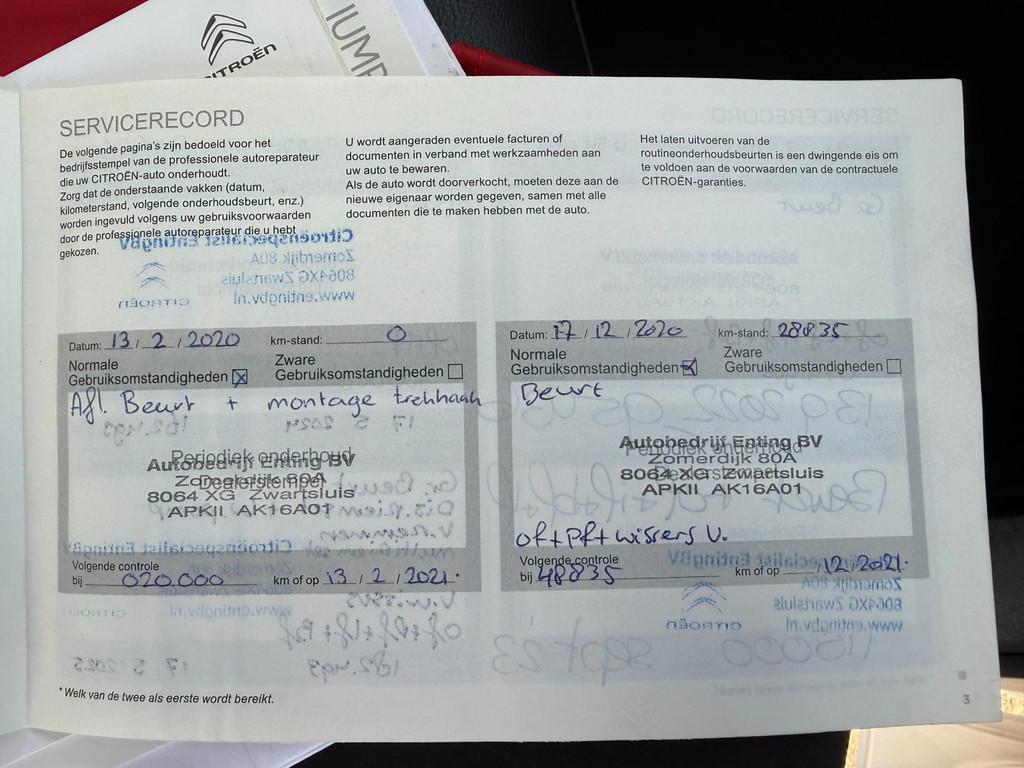 CITROËN
SERVICERECORD
De volgende pagina's zijn bedoeld voor het
bedrijfsstempel van de professionele autoreparateur
die uw CITROËN-auto onderhoudt.
Zorg dat de onderstaande vakken (datum,
kilometerstand, volgende onderhoudsbeurt, enz.)
worden ingevuld volgens uw gebruiksvoorwaarden
door de professionele autoreparateur die u hebt
gekozen.
U wordt aangeraden eventuele facturen of
documenten in verband met werkzaamheden aan
uw auto te bewaren.
Als de auto wordt doorverkocht, moeten deze aan de
nieuwe eigenaar worden gegeven, samen met alle
documenten die te maken hebben met de auto.
Het laten uitvoeren van de
routineonderhoudsbeurten is een dwingende eis om
te voldoen aan de voorwaarden van de contractuele
CITROËN-garanties.
Datum: 13 / 2 / 2020 km-stand: 0
Normale Zware
Gebruiksomstandigheden Gebruiksomstandigheden
Afl. Beurt + montage trekhaak
Periodiek onderhoud
Autobedrijf Enting BV
Zomerdijk 80A
Dealerstempel
8064 XG Zwartsluis
APKII AK16A01
Volgende controle
bij 020.000 km of op 13 / 2 / 2021.
Datum: 17 / 12 / 2020 km-stand: 28835
Normale Zware
Gebruiksomstandigheden Gebruiksomstandigheden
Beurt
Autobedrijf Enting BV
Periodiek onderhoud
Zomerdijk 80A
8064 XG Zwartsluis
Dealerstempel
APKII AK16A01
of+pf+wissers V.
Volgende controle
bij 48835 km of op /12/2021.
* Welk van de twee als eerste wordt bereikt.
3